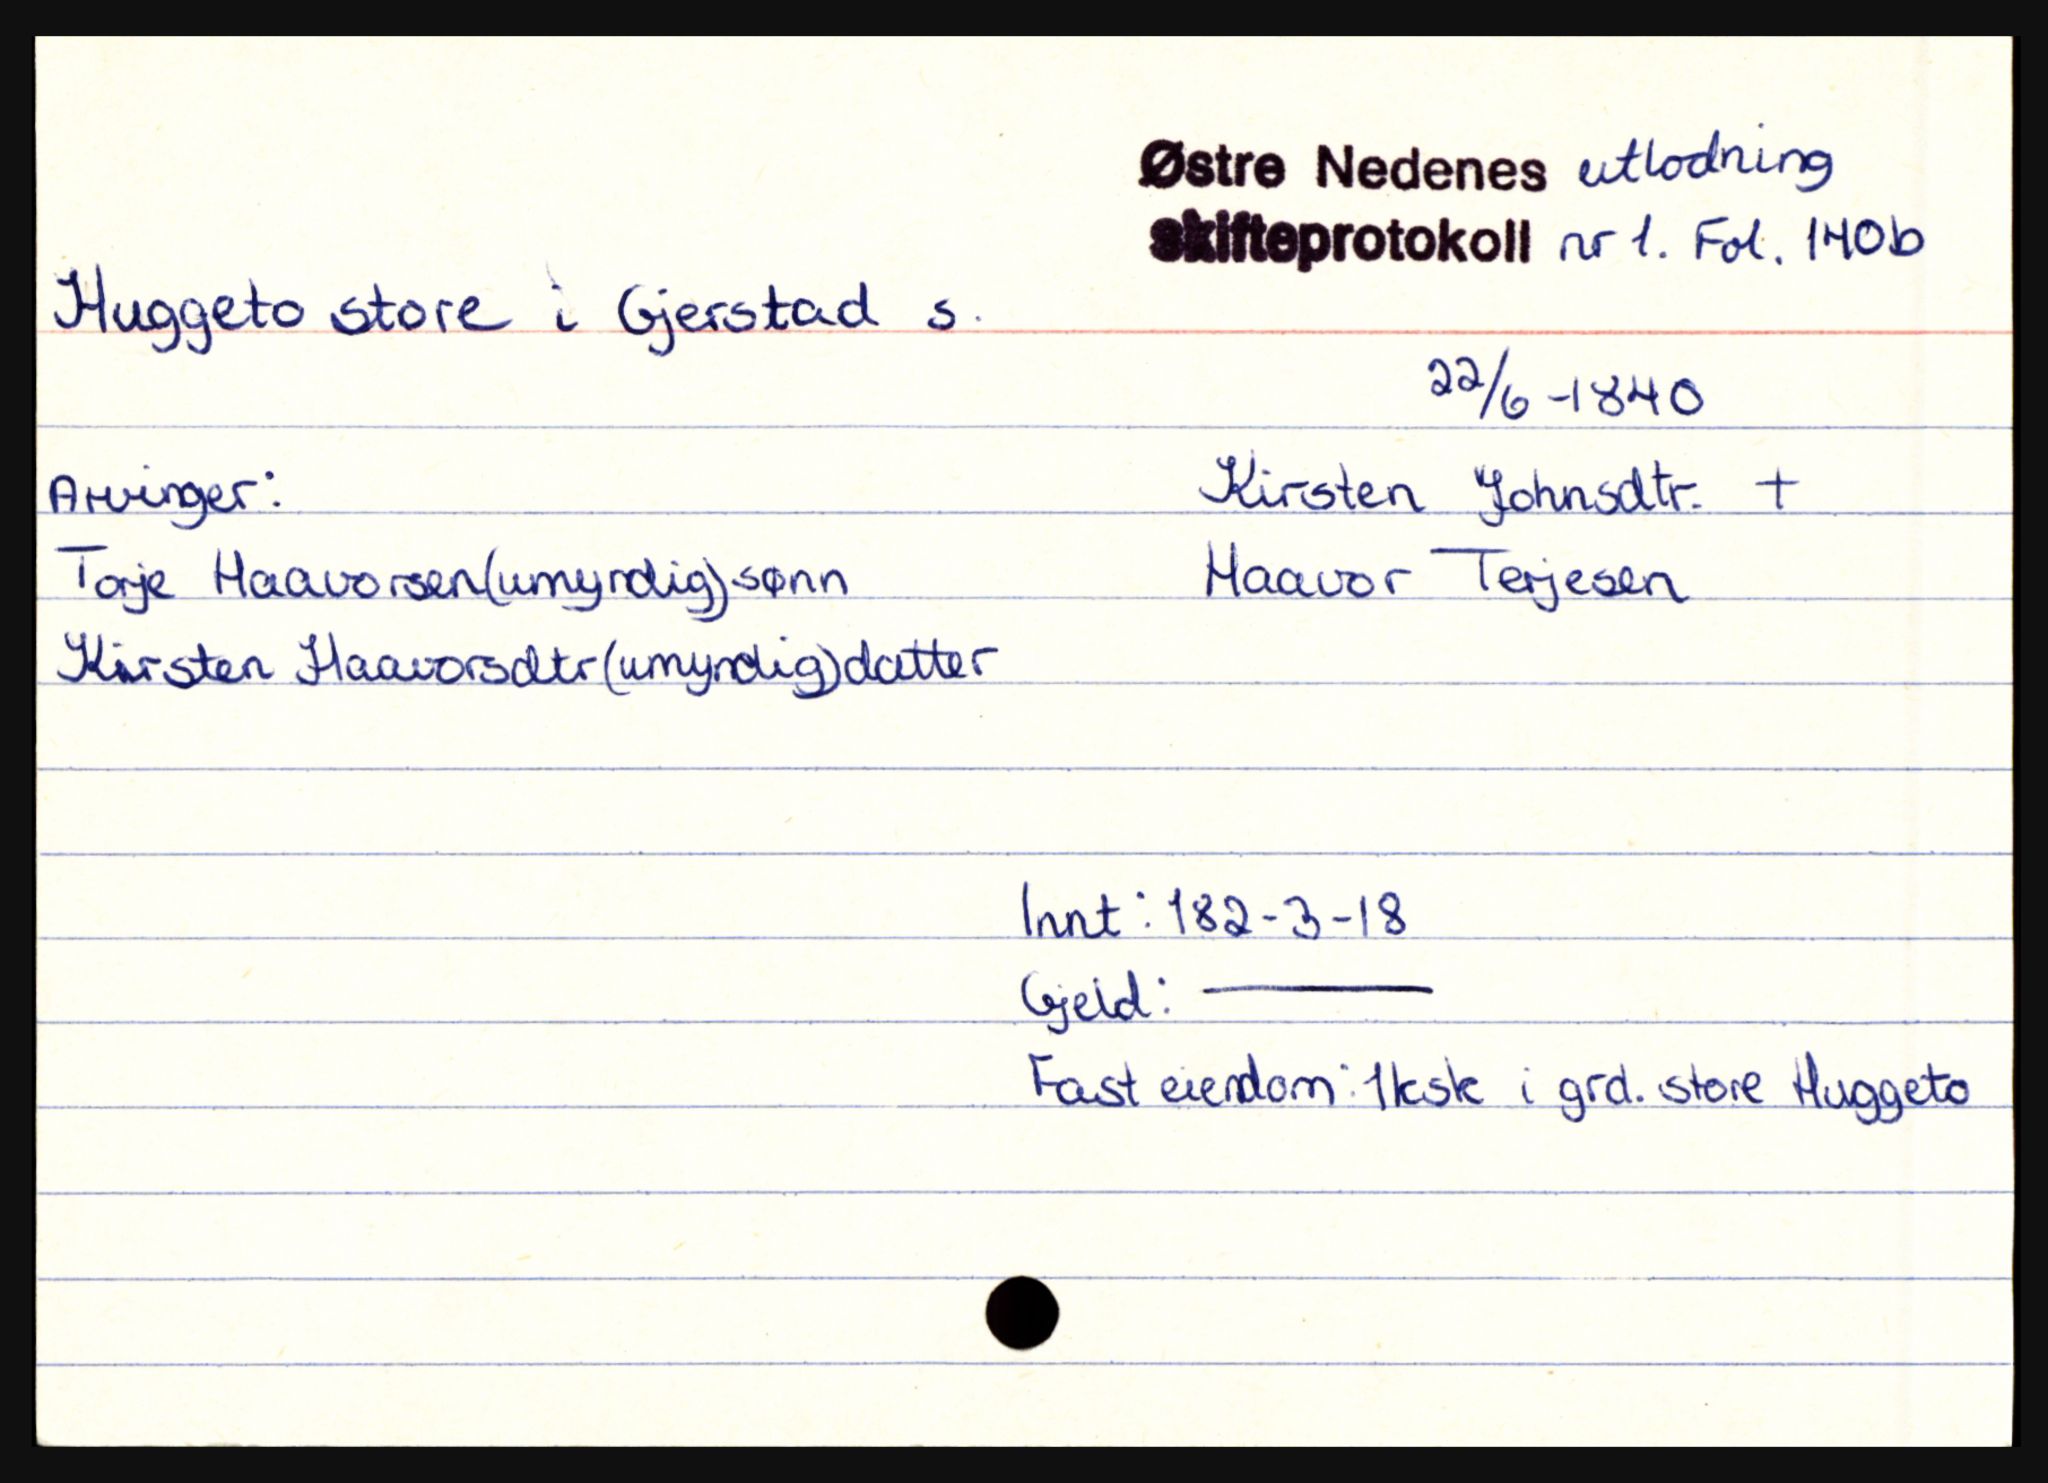 Østre Nedenes utlodning
skifteprotokoll nr 1. Fol. 140b
Huggeto store i Gjerstad s.
22/6-1840
Arvinger:
Kirsten Johnsdtr. +
Torje Haavorsen(umyndig)sønn
Haavor Terjesen
Kirsten Haavorsdtr(umyndig)datter
Innt: 182-3-18
Gjeld: ———
Fast eiendom: 1ksk i grd. store Huggeto